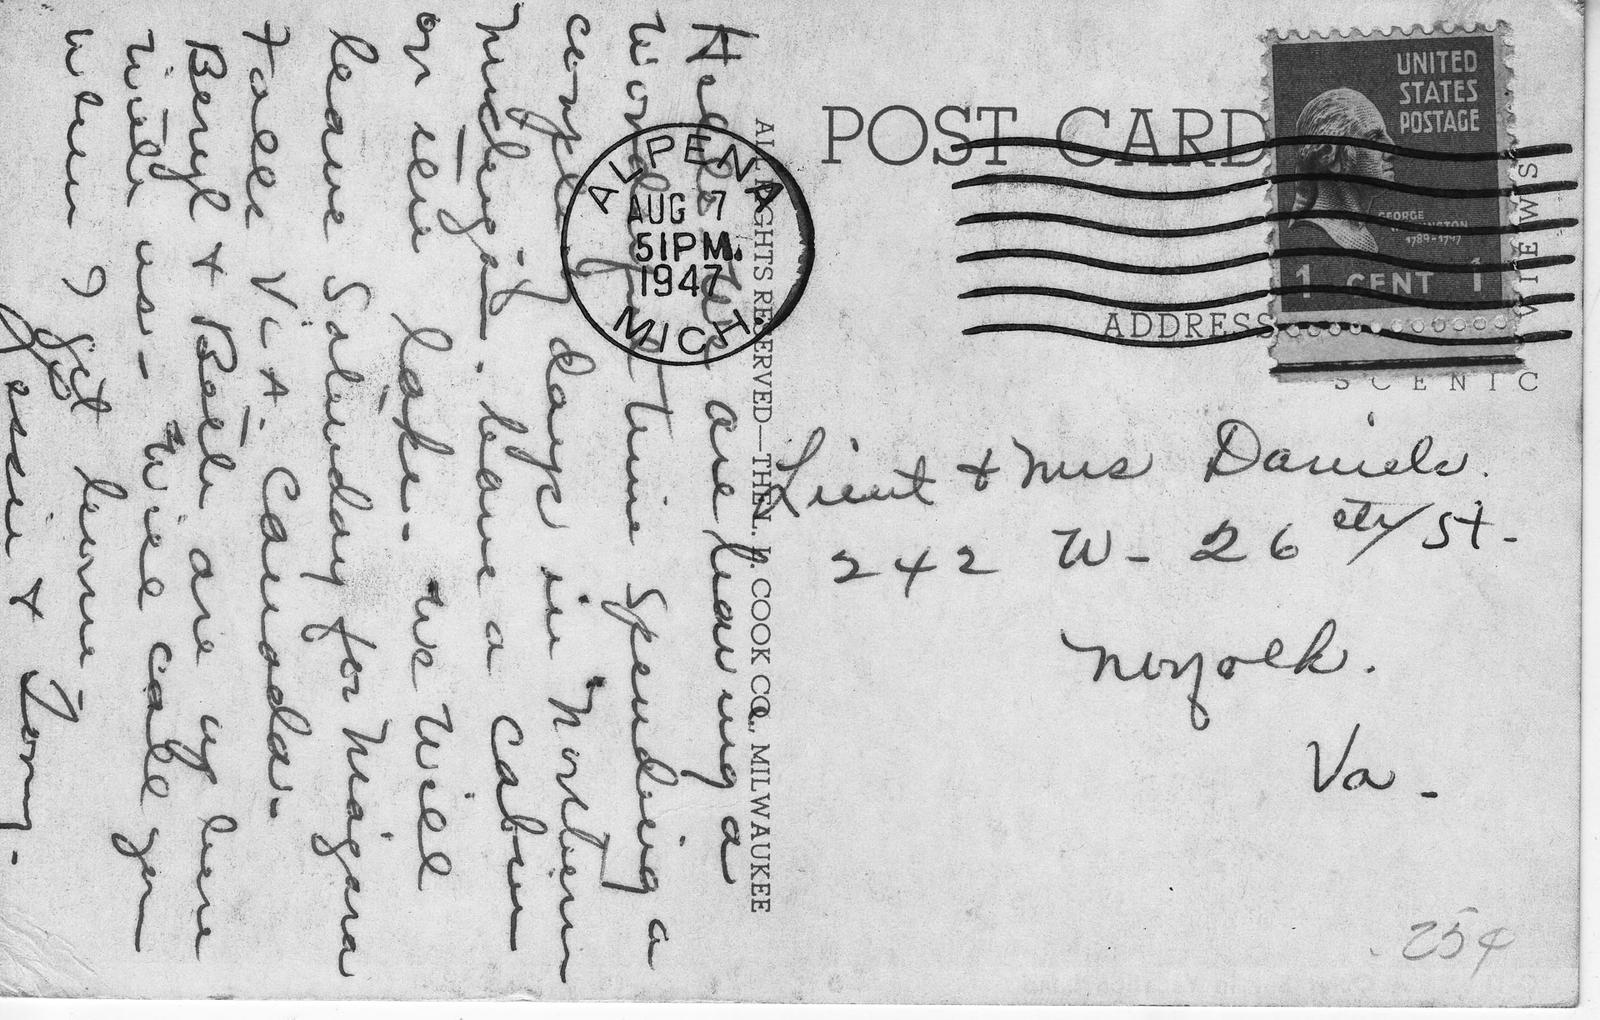 POST CARD
ADDRESS
SCENIC
VIEWS
UNITED
STATES
POSTAGE
GEORGE
WASHINGTON
1789-1797
1 CENT 1
ALPENA
AUG 7
51PM.
1947
MICH.
ALL RIGHTS RESERVED—THE L. L. COOK CO., MILWAUKEE
Hello
We are having a
Wonderful time Spending a
couple days in Northern
Michigan. have a Cabin
on the lake - We Will
leave Saturday for Niagara
Falls ViA. Canada.
Beryl + Beth are up here
With us - Will call you
When I get home
Jessie + Tony.
Lieut + Mrs Daniels.
242 W - 26 th/ St.-
Norfolk.
Va -
25¢